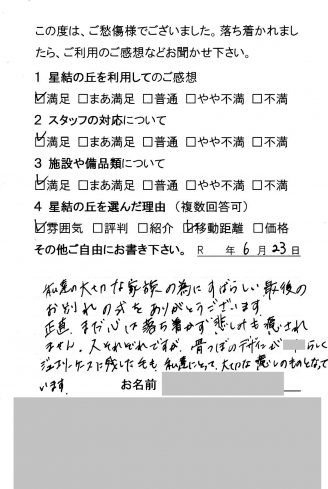 この度は、ご愁傷様でございました。落ち着かれまし
たら、ご利用のご感想などお聞かせ下さい。
1 星結の丘を利用してのご感想
☑満足 □まあ満足 □普通 □やや不満 □不満
2 スタッフの対応について
☑満足 □まあ満足 □普通 □やや不満 □不満
3 施設や備品類について
☑満足 □まあ満足 □普通 □やや不満 □不満
4 星結の丘を選んだ理由（複数回答可）
☑雰囲気 □評判 □紹介 ☑移動距離 □価格
その他ご自由にお書き下さい。 R 年 6 月 23 日
私達の大切な家族の為にすばらしい最後の
お別れの式をありがとうございます
正直、まだ心は落ち着かず悲しみも癒され
ません。人それぞれですが、骨つぼのデザインが らしく
ジュエリーケースに残した毛も、私達にとって、大切な癒しのものとなって
います。
お名前